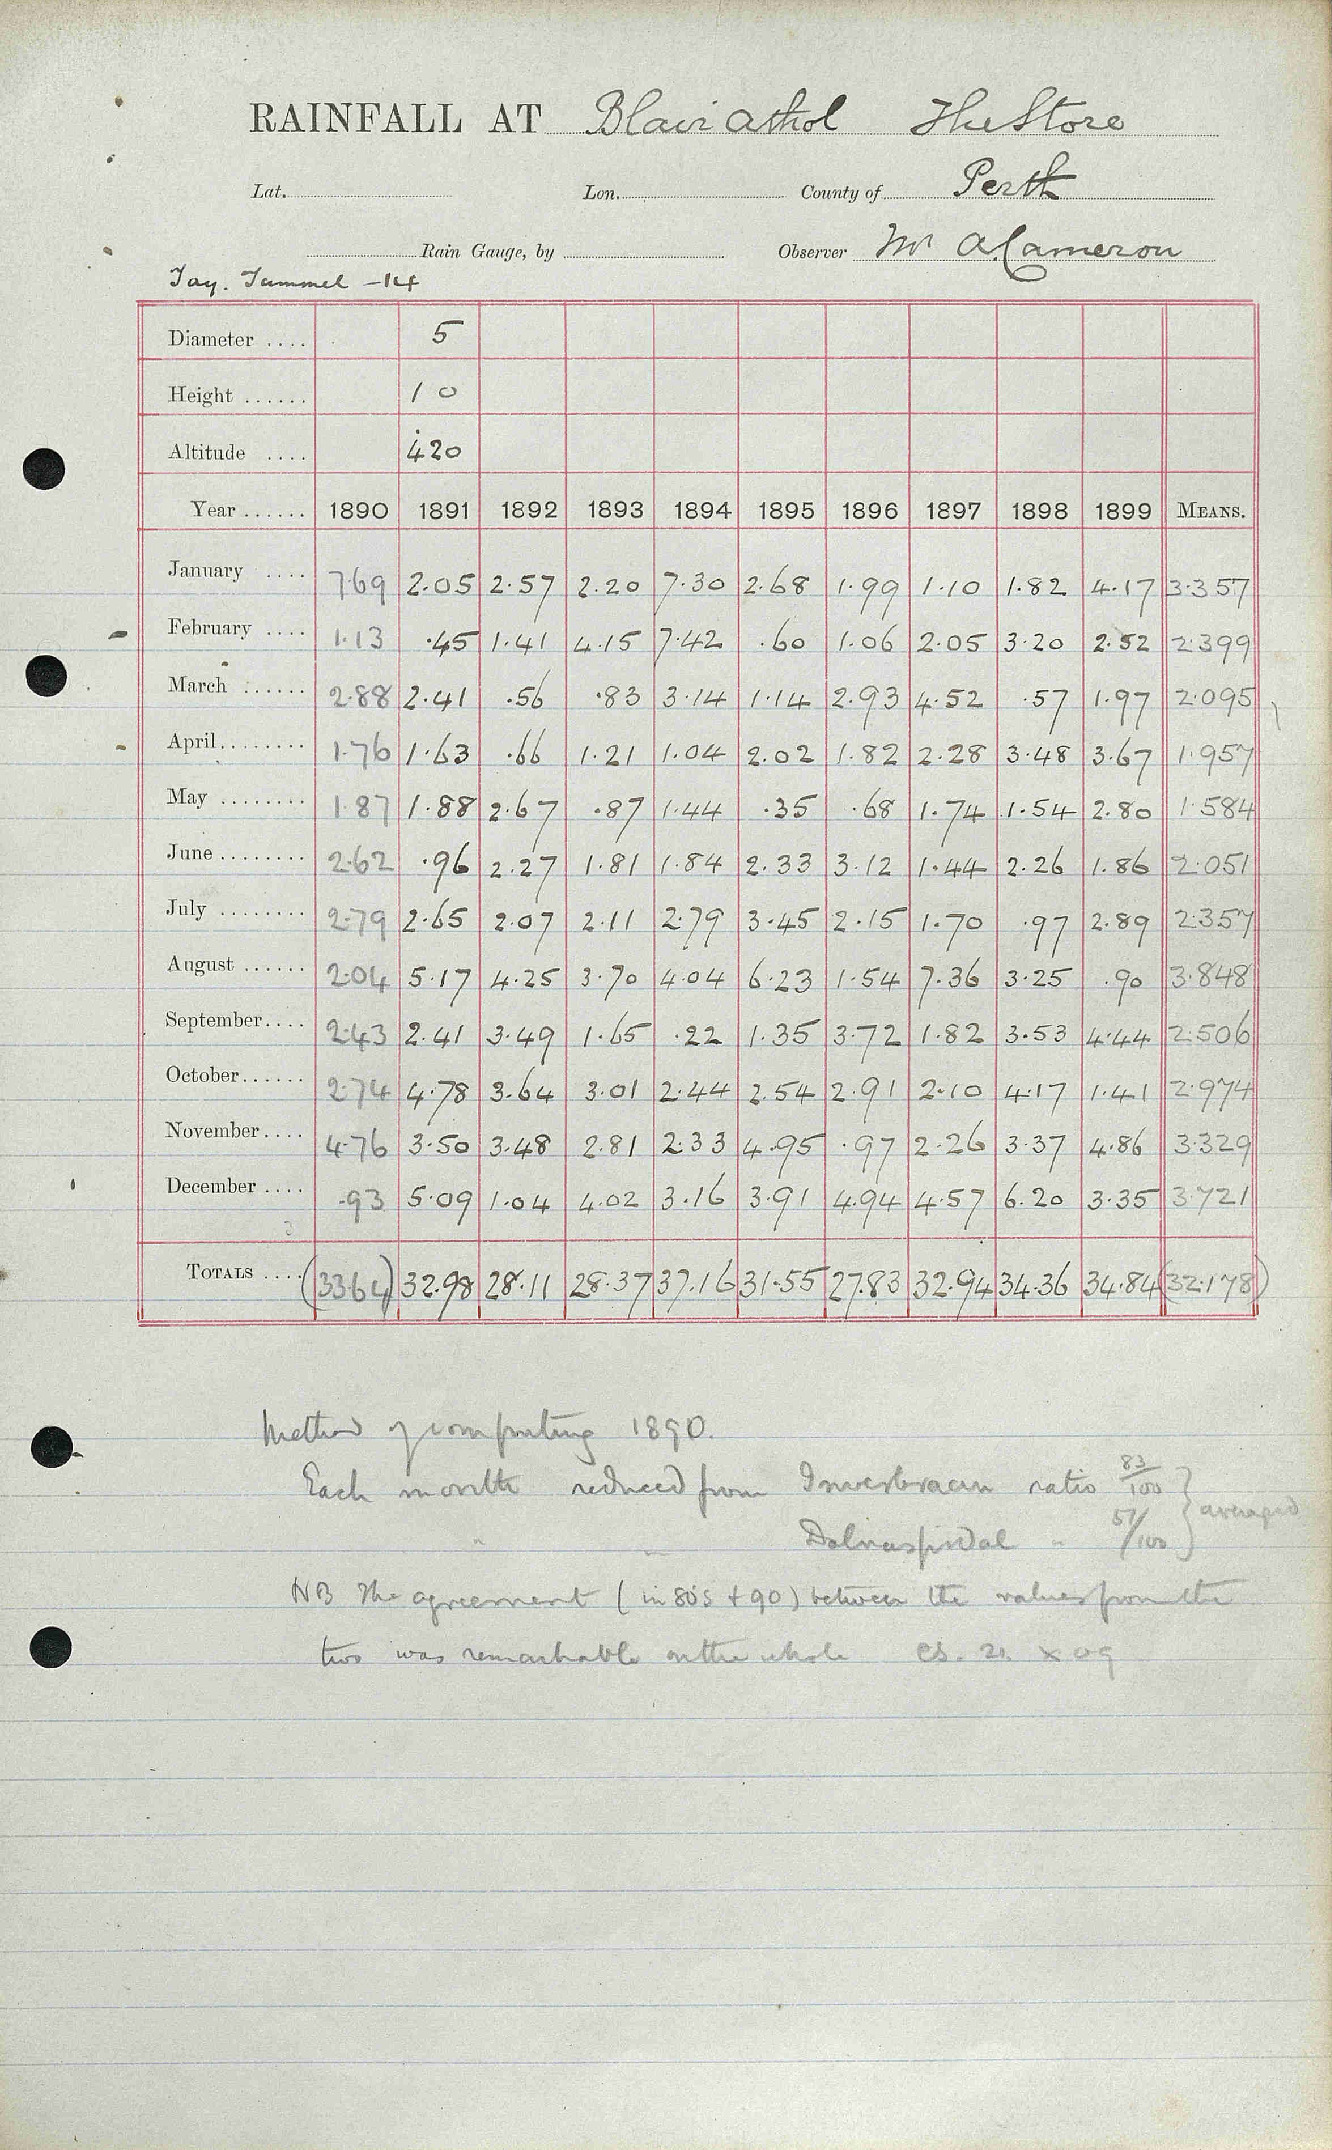 RAINFALL AT Blair Athol The Store
Lat. Lon. County of Perth
Rain Gauge, by Observer Mr A. Cameron
Tay. Tummel - 14
Diameter .... 5
Height ...... 10
Altitude .... 420
Year ...... 1890 1891 1892 1893 1894 1895 1896 1897 1898 1899 MEANS.
January .... 7.69 2.05 2.57 2.20 7.30 2.68 1.99 1.10 1.82 4.17 3.357
February .... 1.13 .45 1.41 4.15 7.42 .60 1.06 2.05 3.20 2.52 2.399
March ...... 2.88 2.41 .56 .83 3.14 1.14 2.93 4.52 .57 1.97 2.095
April........ 1.76 1.63 .66 1.21 1.04 2.02 1.82 2.28 3.48 3.67 1.957
May ........ 1.87 1.88 2.67 .87 1.44 .35 .68 1.74 1.54 2.80 1.584
June ........ 2.62 .96 2.27 1.81 1.84 2.33 3.12 1.44 2.26 1.86 2.051
July ........ 2.79 2.65 2.07 2.11 2.79 3.45 2.15 1.70 .97 2.89 2.357
August ...... 2.04 5.17 4.25 3.70 4.04 6.23 1.54 7.36 3.25 .90 3.848
September.... 2.43 2.41 3.49 1.65 .22 1.35 3.72 1.82 3.53 4.44 2.506
October...... 2.74 4.78 3.64 3.01 2.44 2.54 2.91 2.10 4.17 1.41 2.974
November.... 4.76 3.50 3.48 2.81 2.33 4.95 .97 2.26 3.37 4.86 3.329
December .... .93 5.09 1.04 4.02 3.16 3.91 4.94 4.57 6.20 3.35 3.721
TOTALS .... (33.64) 32.98 28.11 28.37 37.16 31.55 27.83 32.94 34.36 34.84 (32.178)
Method of computing 1890.
Each month reduced from Inverbraan ratio 83/100 } averaged
" " Dalnaspidal " 57/100
NB The agreement (in 80's + 90) between the values from the
two was remarkable on the whole 21. x 09